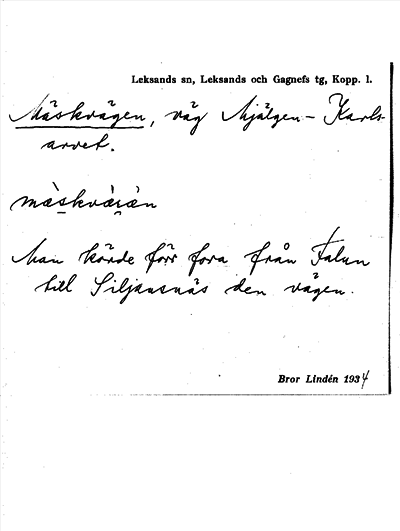 Leksands sn, Leksands och Gagnefs tg, Kopp. l.
Mäskvägen, väg Mjälgen - Karls-
arvet.
mà̤skvä̀i̯än
Man körde förr fora från Falun
till Siljansnäs den vägen.
Bror Lindén 1934